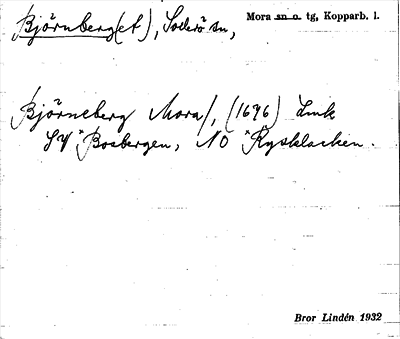 Björnberg(et), Sollerö sn, Mora sn o. tg, Kopparb. l.
Björneberg Mora/, (1676) Lmk
SV *Bosbergen, NO *Rysklacken.
Bror Lindén 1932